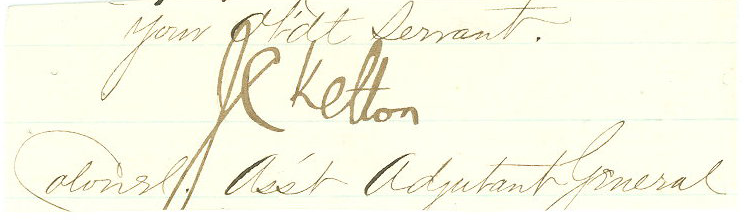 your Ob'dt Servant.
JC Kelton
Colonel. Ass't Adjutant General